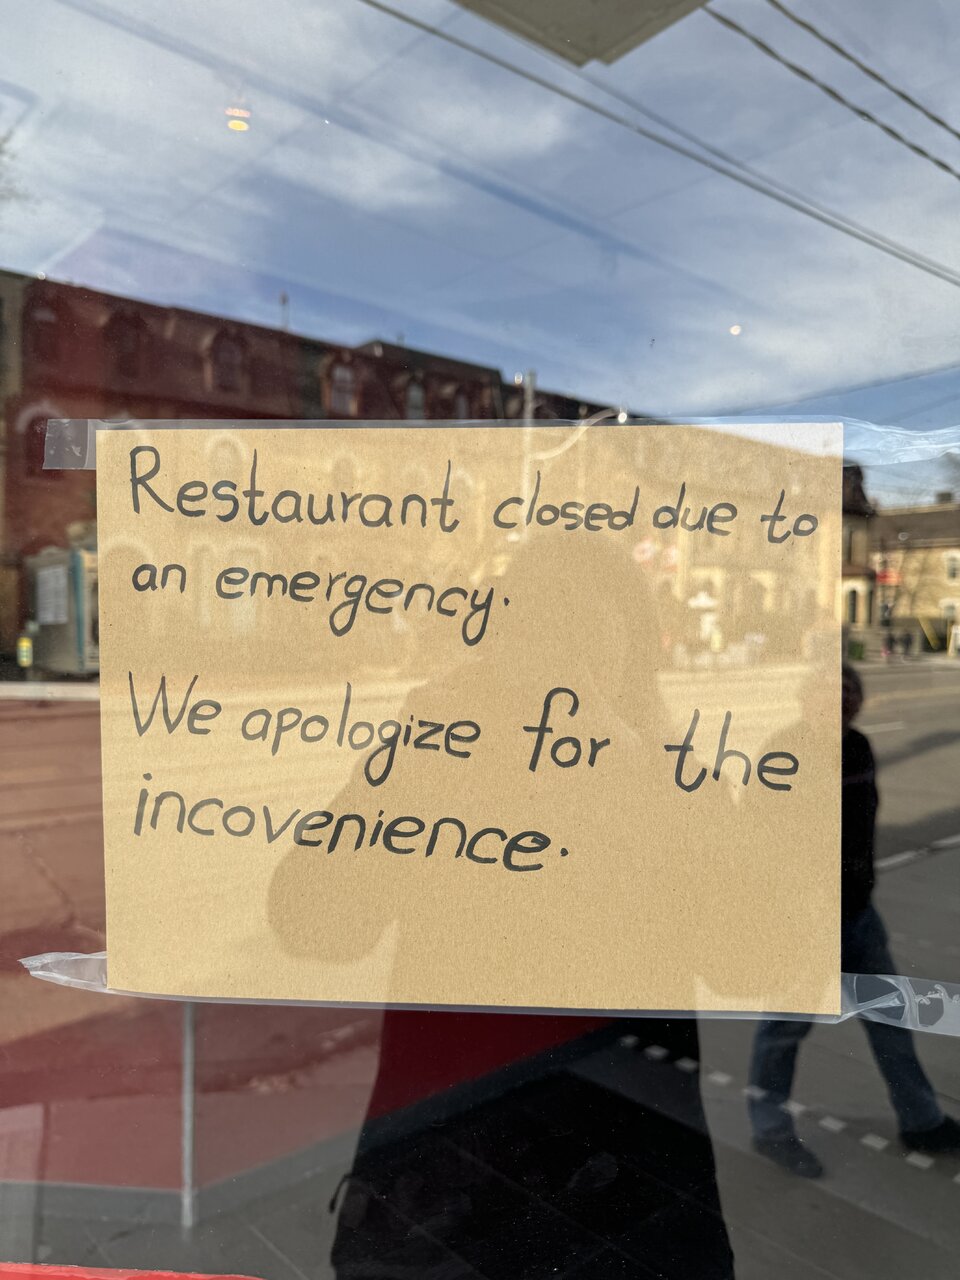 Restaurant closed due to
an emergency.
We apologize for the
incovenience.